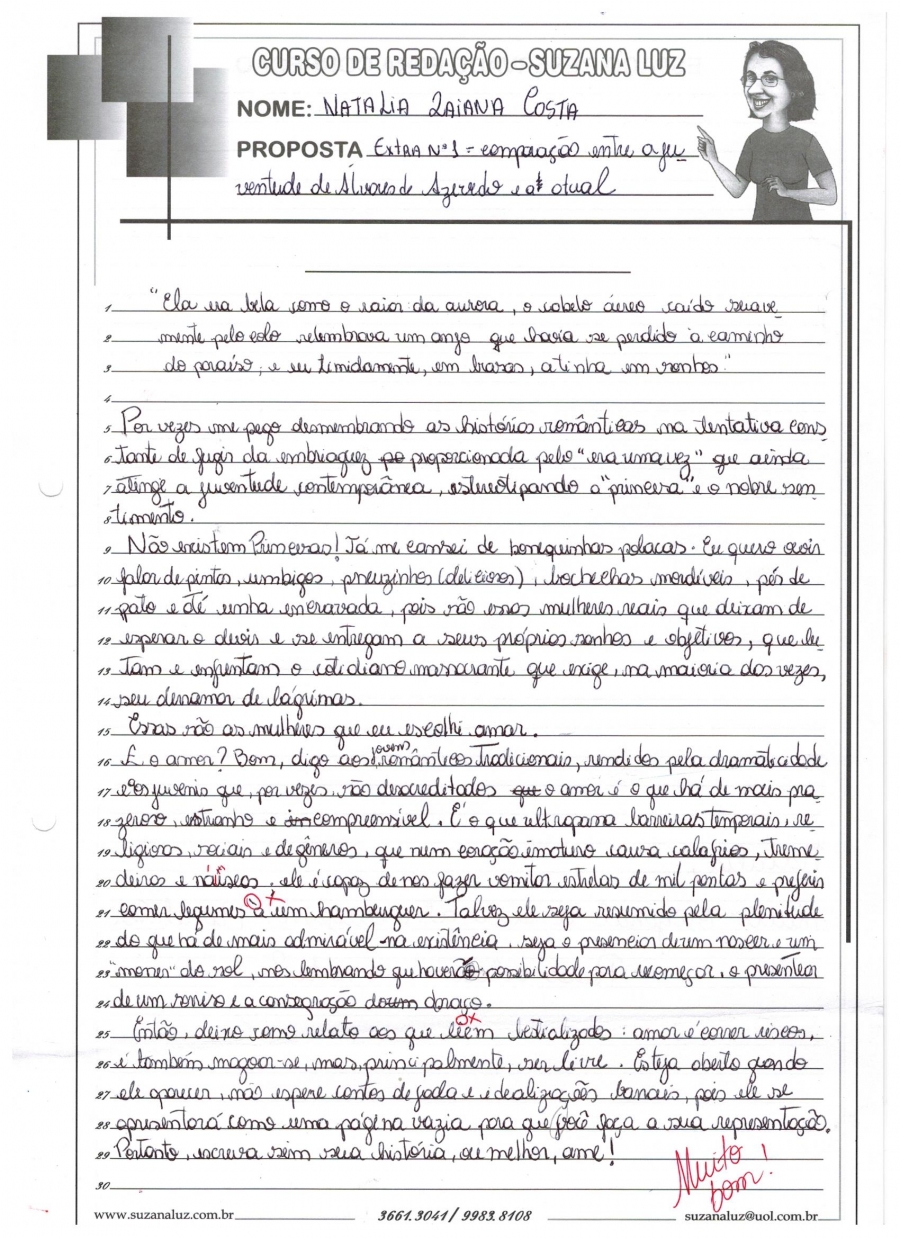 CURSO DE REDAÇÃO - SUZANA LUZ
NOME: NATALIA ZAIANA COSTA
PROPOSTA Extra Nº 1 = comparação entre a ju-
ventude de Álvares de Azevedo e a atual
1 "Ela era bela como o raiar da aurora, o cabelo áureo caído suave-
2 mente pelo colo relembrava um anjo que havia se perdido à caminho
3 do paraíso; e eu timidamente, em brasas, a tinha em sonhos."
4
5 Por vezes me pego desmembrando as histórias românticas na tentativa cons-
6 tante de fugir da embriaguez proporcionada pelo "era uma vez" que ainda
7 atinge a juventude contemporânea, estereotipando a "princesa" e o nobre sen-
8 timento.
9 Não existem Princesas! Já me cansei de bonequinhas polacas. Eu quero ouvir
10 falar de pintas, umbigos, pneuzinhos (deliciosos), bochechas mordíveis, pés de
11 pato e até unha encravada, pois são essas mulheres reais que deixam de
12 esperar o devir e se entregam a seus próprios sonhos e objetivos, que lu-
13 tam e enfrentam o cotidiano massacrante que exige, na maioria das vezes,
14 seu derramar de lágrimas.
15 Essas são as mulheres que eu escolhi amar.
16 E o amor? Bom, digo aos jovens românticos tradicionais, rendidos pela dramaticidade
17 e aos juvenis que, por vezes, são desacreditados o amor é o que há de mais pra-
18 zeroso, estranho e incompreensível. É o que ultrapassa barreiras temporais, re-
19 ligiosas, sociais e de gêneros, que num coração imaturo causa calafrios, treme-
20 deiras e náuseas, ele é capaz de nos fazer vomitar estrelas de mil pontas e preferir
21 comer legumes a um hamburguer. Talvez ele seja resumido pela plenitude
22 do que há de mais admirável na existência, seja o presenciar de um nascer e um
23 "morrer" do sol, nos lembrando que haverá possibilidade para recomeçar, o presentear
24 de um sorriso e a consagração do abraço.
25 Então, deixo como relato aos que leem bestializados: amor é correr riscos,
26 é também magoar-se, mas, principalmente, ser livre. Esteja aberto quando
27 ele aparecer, não espere contos de fada e idealizações banais, pois ele se
28 apresentará como uma página vazia para que você faça a sua representação.
29 Portanto, escreva sem seia história, ou melhor, ame!
30
Muito
bom!
www.suzanaluz.com.br 3661.3041 / 9983.8108 suzanaluz@uol.com.br